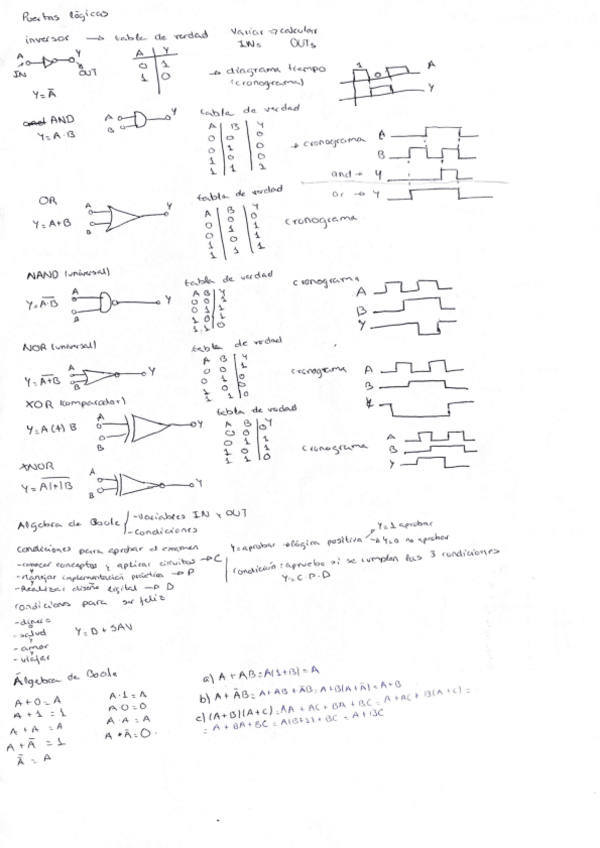 Puertas lógicas
inversor → tabla de verdad Variar → calcular
INs OUTs
A Y
IN OUT
A Y
0 1
1 0
→ diagrama tiempo
(cronograma)
1 0
A
Y
Y = Ā
AND
Y = A·B
A
B
Y
tabla de verdad
A B Y
0 0 0
0 1 0
1 0 0
1 1 1
→ cronograma
A
B
and → Y
or → Y
OR
Y = A+B
A
B
Y
tabla de verdad
A B Y
0 0 0
0 1 1
1 0 1
1 1 1
cronograma
NAND (universal)
Y = \overline{A·B}
A
B
Y
tabla de verdad
A B Y
0 0 1
0 1 1
1 0 1
1 1 0
cronograma
A
B
Y
NOR (universal)
Y = \overline{A+B}
A
B
Y
tabla de verdad
A B Y
0 0 1
0 1 0
1 0 0
1 1 0
cronograma
A
B
Y
XOR (comparador)
Y = A(+)B
A
B
Y
tabla de verdad
A B Y
0 0 0
0 1 1
1 0 1
1 1 0
cronograma
A
B
Y
XNOR
Y = \overline{A(+)B}
A
B
Y
Algebra de Boole
-variables IN y OUT
-condiciones
condiciones para aprobar el examen
-conocer conceptos y aplicar circuitos → C
-manejar implementación práctica → P
-Realizar diseño digital → D
Y = aprobar → lógica positiva
Y=1 aprobar
Y=0 no aprobar
condición: apruebo si se cumplen las 3 condiciones
Y = C·P·D
condiciones para ser feliz
-dinero
-salud
-amor
-viajar
Y = D + SAV
Álgebra de Boole
A+0 = A
A+1 = 1
A+A = A
A+Ā = 1
A·1 = A
A·0 = 0
A·A = A
A·Ā = 0
a) A + AB = A(1+B) = A
b) A + ĀB = A + AB + ĀB = A + B(A+Ā) = A+B
c) (A+B)(A+C) = AA + AC + BA + BC = A + AC + B(A+C) =
= A + BA + BC = A(B+1) + BC = A+BC